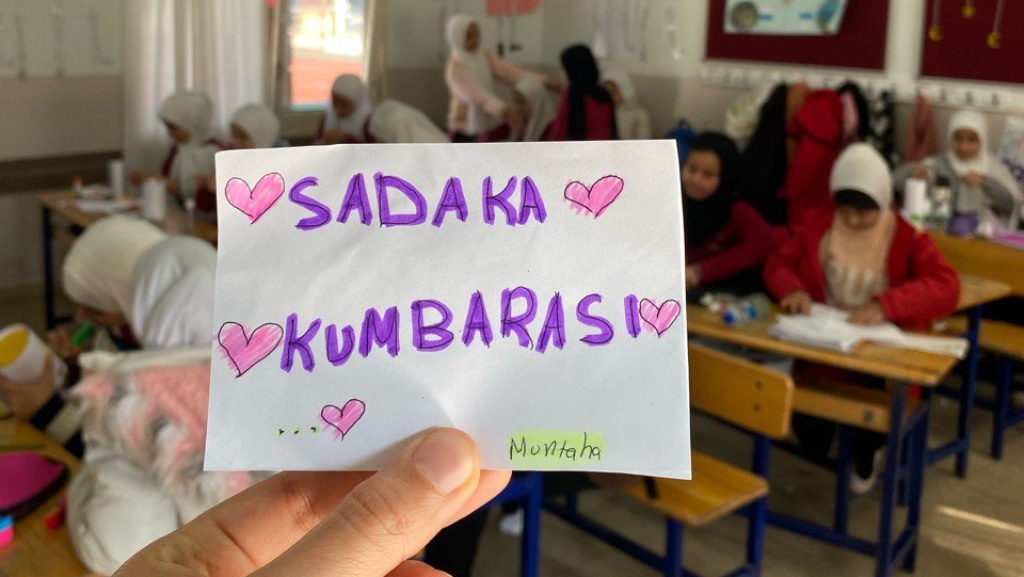 SADAKA
KUMBARASI
...
Muntaha